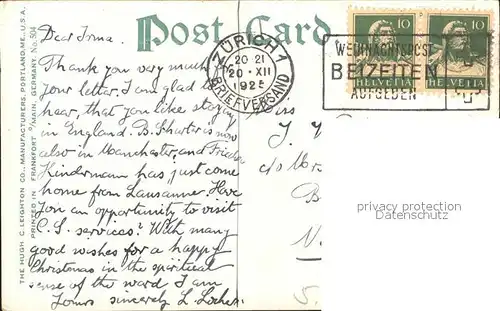 Post Card
THE HUGH C. LEIGHTON CO., MANUFACTURERS, PORTLAND, ME., U.S.A.
PRINTED IN FRANKFORT O/MAIN, GERMANY. No. 504
Dear Irma.
Thank you very much for
your letter. I am glad to
hear, that you like staying
in England. B. is now
also in Manchester, and Frieda
Kindermann has just come
home from Lausanne. Have
you an opportunity to visit
C.S. services? With many
good wishes for a happy
Christmas in the spiritual
sense of the word I am
Yours sincerely L. Locher.
ZÜRICH 1
20 21
20·XII
1925
BRIEFVERSAND
10 10
HELVETIA HELVETIA
WEIHNACHTSPOST
BEIZEITEN
AUFGEBEN
c/o
privacy protection
Datenschutz